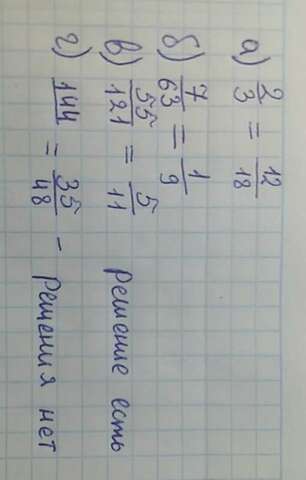 а) 2/3 = 12/18
б) 7/63 = 1/9
в) 55/121 = 5/11 Решение есть
г) 144/ = 35/48 - Решения нет